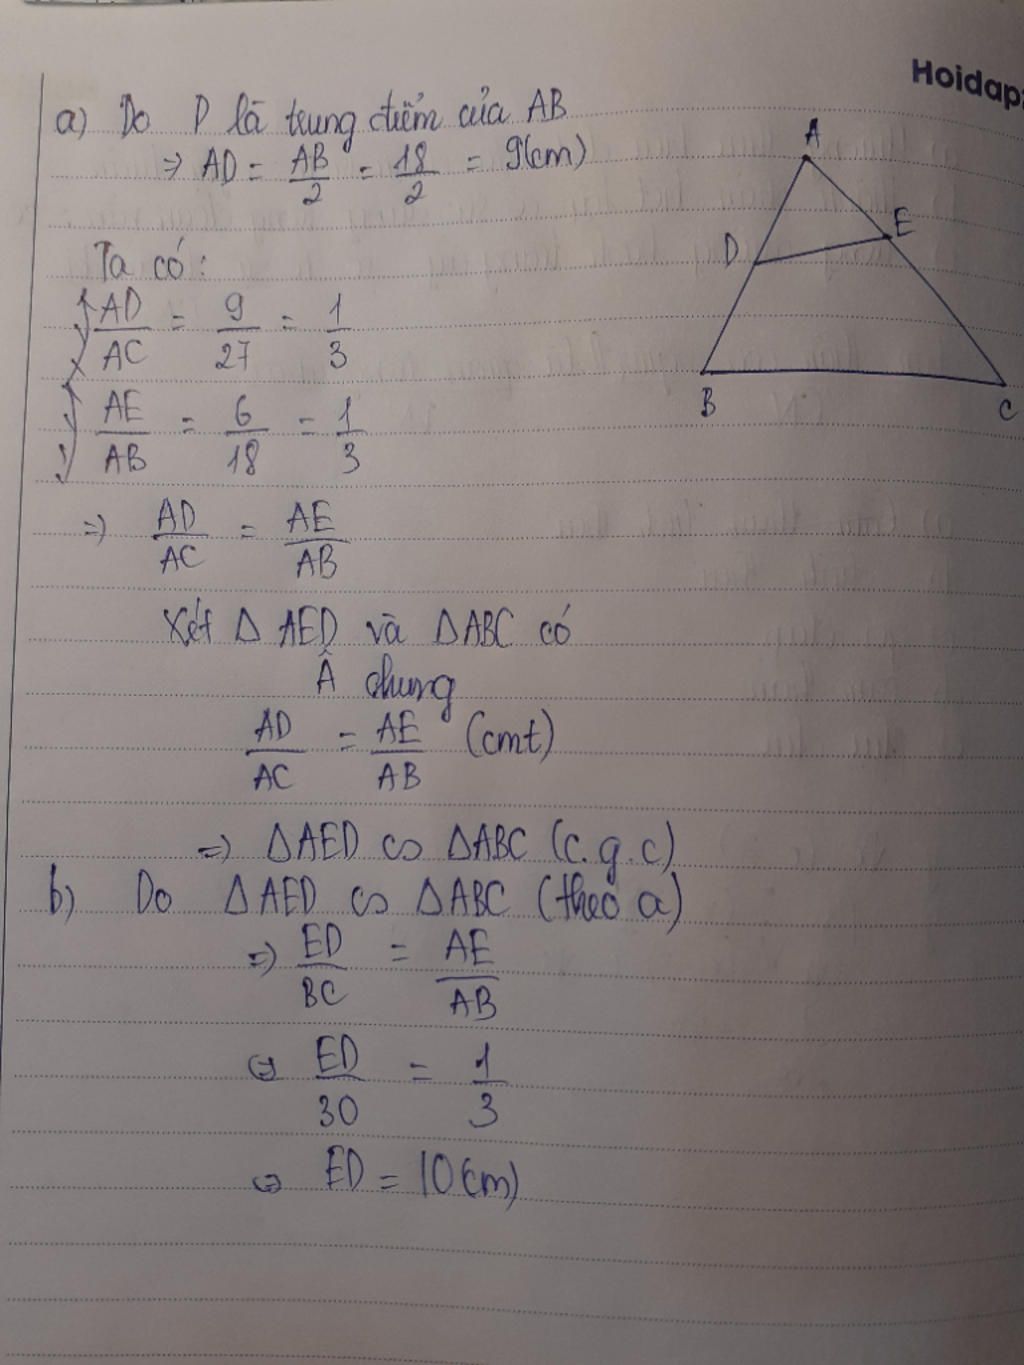 Hoidap
a) Do D là trung điểm của AB
=> AD = AB/2 = 18/2 = 9(cm)
Ta có:
AD/AC = 9/27 = 1/3
AE/AB = 6/18 = 1/3
=> AD/AC = AE/AB
Xét Δ AED và ΔABC có
Â chung
AD/AC = AE/AB (cmt)
=> ΔAED ∽ ΔABC (c.g.c)
b) Do ΔAED ∽ ΔABC (theo a)
=> ED/BC = AE/AB
<=> ED/30 = 1/3
<=> ED = 10(cm)
A
E
D
B
C